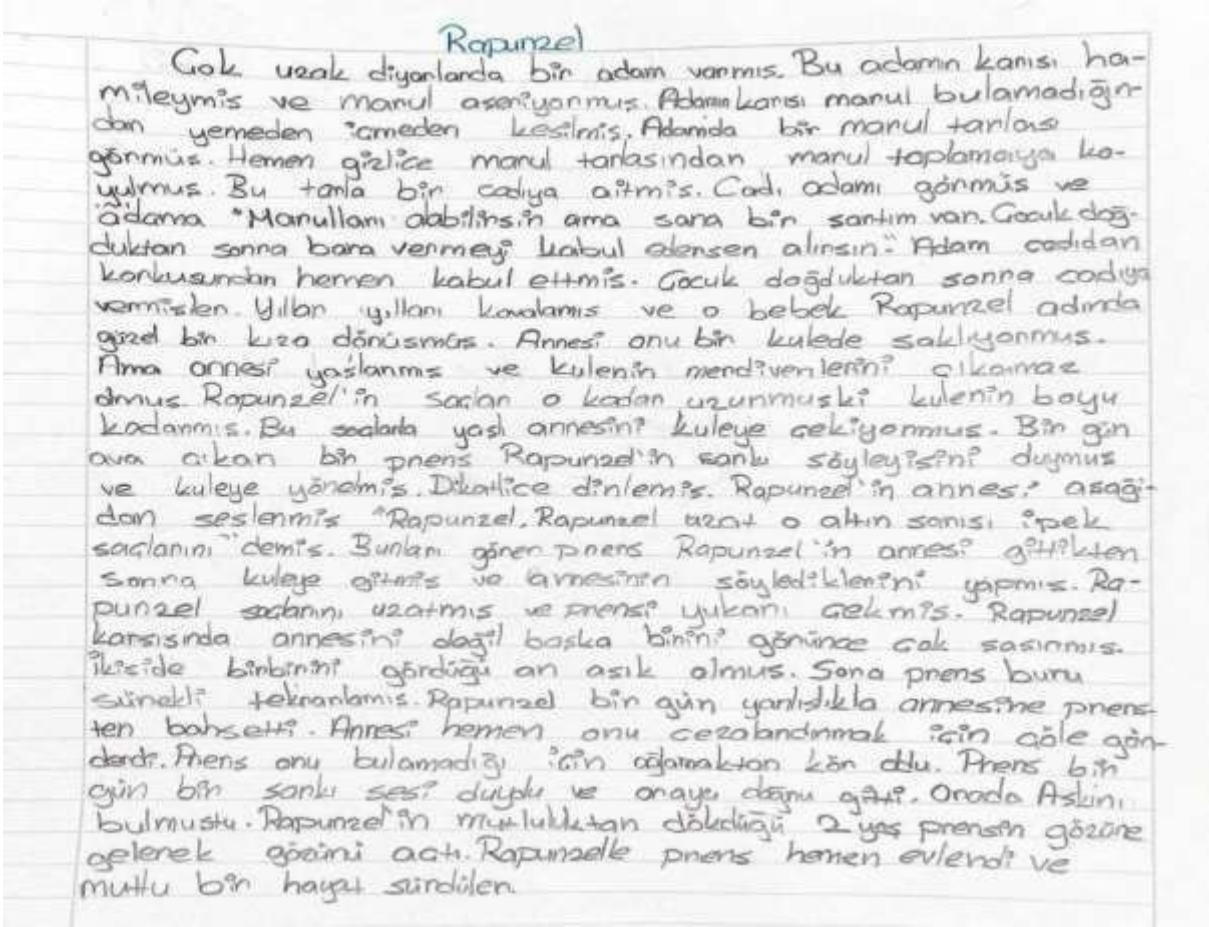 Rapunzel
Çok uzak diyarlarda bir adam varmış. Bu adamın karısı ha-
mileymiş ve marul aşeriyormuş. Adamın karısı marul bulamadığın-
dan yemeden içmeden kesilmiş. Adamda bir marul tarlası
görmüş. Hemen gizlice marul tarlasından marul toplamaya ko-
yulmuş. Bu tarla bir cadıya aitmiş. Cadı adamı görmüş ve
adama "Marulları alabilirsin ama sana bir şartım var. Çocuk doğ-
duktan sonra bana vermeyi kabul edersen alırsın." Adam cadıdan
korkusundan hemen kabul ettmiş. Çocuk doğduktan sonra cadıya
vermişler. Yıllar yılları kovalamış ve o bebek Rapunzel adında
güzel bir kıza dönüşmüş. Annesi onu bir kulede saklıyormuş.
Ama annesi yaşlanmış ve kulenin merdivenlerini çıkamaz
olmuş. Rapunzel'in saçları o kadar uzunmuşki kulenin boyu
kadarmış. Bu saçlarla yaşlı annesini kuleye çekiyormuş. Bir gün
ava çıkan bir prens Rapunzel'in şarkı söyleyişini duymuş
ve kuleye yönelmiş. Dikatlice dinlemiş. Rapunzel'in annesi aşağı-
dan seslenmiş "Rapunzel, Rapunzel uzat o altın sarısı ipek
saçlarını" demiş. Bunları gören prens Rapunzel'in annesi gittikten
sonra kuleye gitmiş ve annesinin söylediklerini yapmış. Ra-
punzel saçlarını uzatmış ve prensi yukarı çekmiş. Rapunzel
karşısında annesini değil başka birini görünce çok şaşırmış.
İkiside birbirini gördüğü an aşık olmuş. Sona prens bunu
sürekli tekrarlamış. Rapunzel bir gün yanlıslıkla annesine prens-
ten bahsetti. Annesi hemen onu cezalandırmak için çöle gön-
derdi. Prens onu bulamadığı için ağlamaktan kör oldu. Prens bir
gün bir şarkı sesi duydu ve oraya doğru gitti. Orada Aşkını
bulmuştu. Rapunzel'in mutluluktan dökdüğü 2 yaş prensin gözüne
gelerek gözünü açtı. Rapunzelle prens hemen evlendi ve
mutlu bir hayat sürdüler.